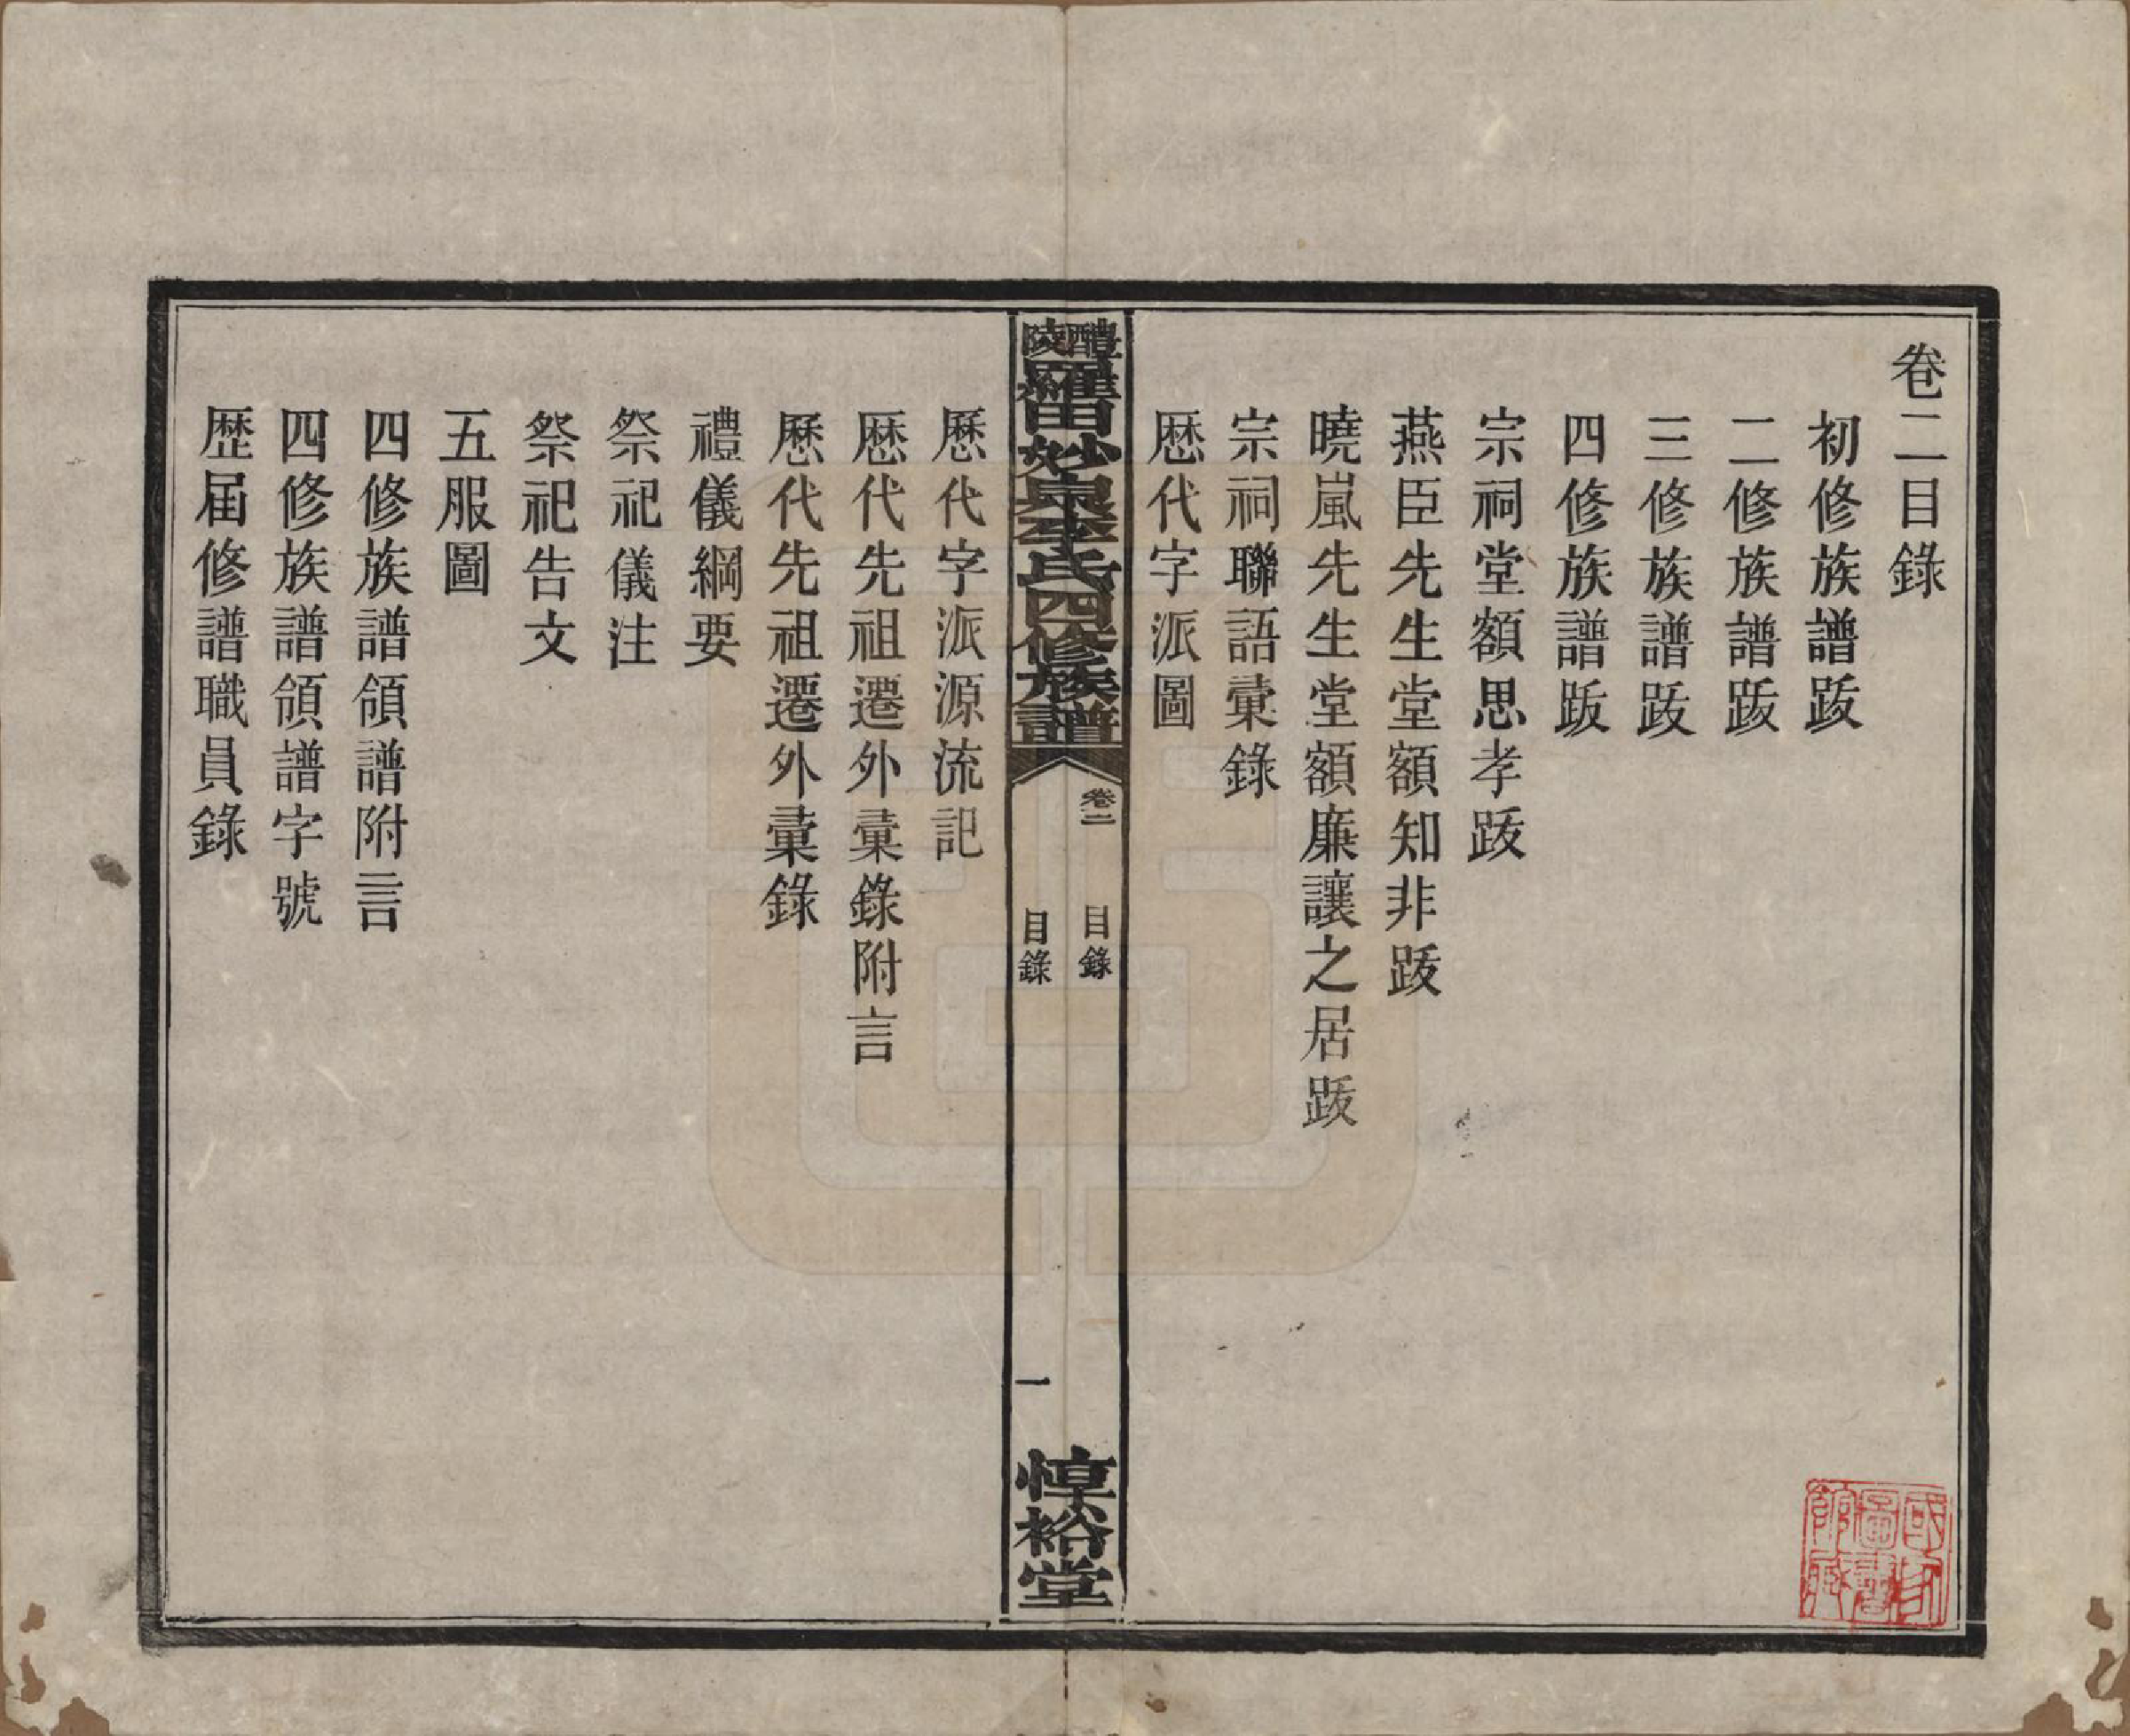 卷二目錄
初修族譜跋
二修族譜跋
三修族譜跋
四修族譜跋
宗祠堂額思孝跋
燕臣先生堂額知非跋
曉嵐先生堂額廉讓之居跋
宗祠聯語彙錄
歷代字派圖
醴陵羅田妙泉李氏四修族譜
卷二
目錄
目錄
一
惇裕堂
歷代字派源流記
歷代先祖遷外彙錄附言
歷代先祖遷外彙錄
禮儀綱要
祭祀儀注
祭祀告文
五服圖
四修族譜領譜附言
四修族譜領譜字號
歷屆修譜職員錄
國家圖書館藏